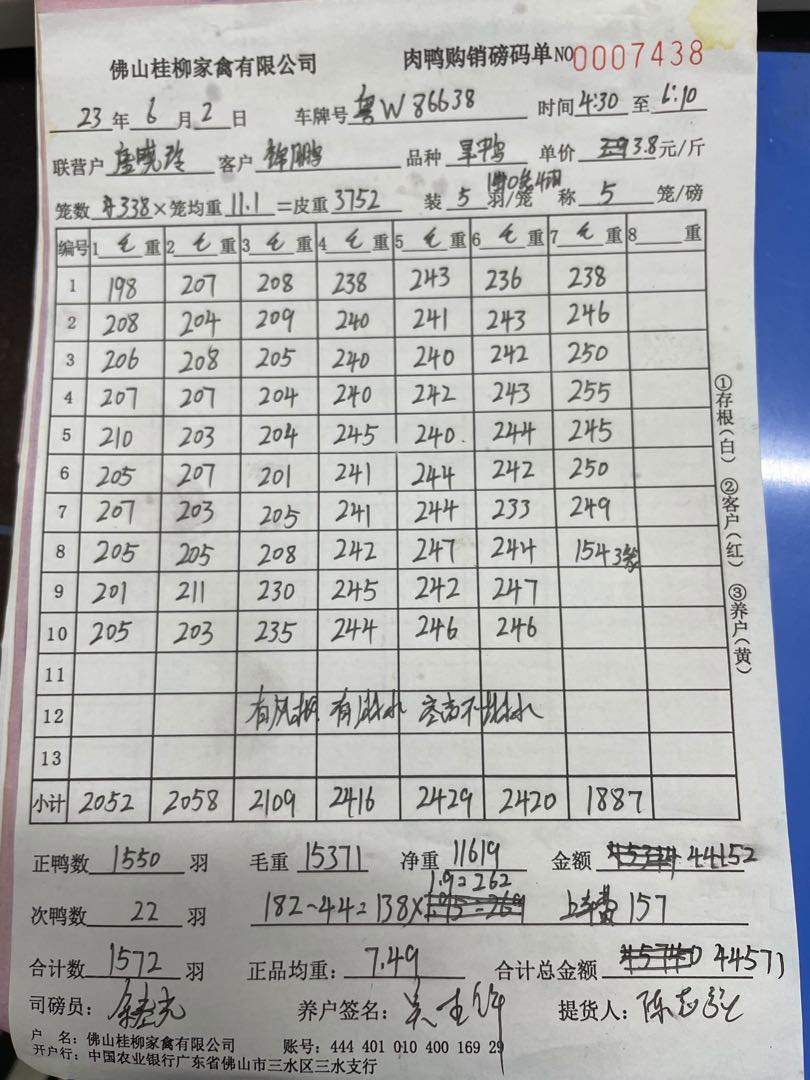 佛山桂柳家禽有限公司 肉鸭购销磅码单 NO 0007438
23年6月2日 车牌号 粤W86638 时间 4:30 至 6:10
联营户 客户 品种 单价 3.8元/斤
笼数 338×笼均重 11.1=皮重 3752 装 5 羽/笼 称 5 笼/磅
编号 1 毛 重 2 毛 重 3 毛 重 4 毛 重 5 毛 重 6 毛 重 7 毛 重 8 重
1 198 207 208 238 243 236 238
2 208 204 209 240 241 243 246
3 206 208 205 240 240 242 250
4 207 207 204 240 242 243 255
5 210 203 204 245 240. 244 245
6 205 207 201 241 244 242 250
7 207 203 205 241 244 233 249
8 205 205 208 242 247 244 154 3
9 201 211 230 245 242 247
10 205 203 235 244 246 246
11
12 有
13
小计 2052 2058 2109 2416 2429 2420 1887
正鸭数 1550 羽 毛重 15371 净重 11619 金额 44152
1.9=262
次鸭数 22 羽 182-44=138× 上车费 157
合计数 1572 羽 正品均重: 7.49 合计总金额 44571
司磅员: 养户签名: 提货人:
户 名: 佛山桂柳家禽有限公司 账号: 444 401 010 400 169 29
开户行: 中国农业银行广东省佛山市三水区三水支行
①存根(白) ②客户(红) ③养户(黄)